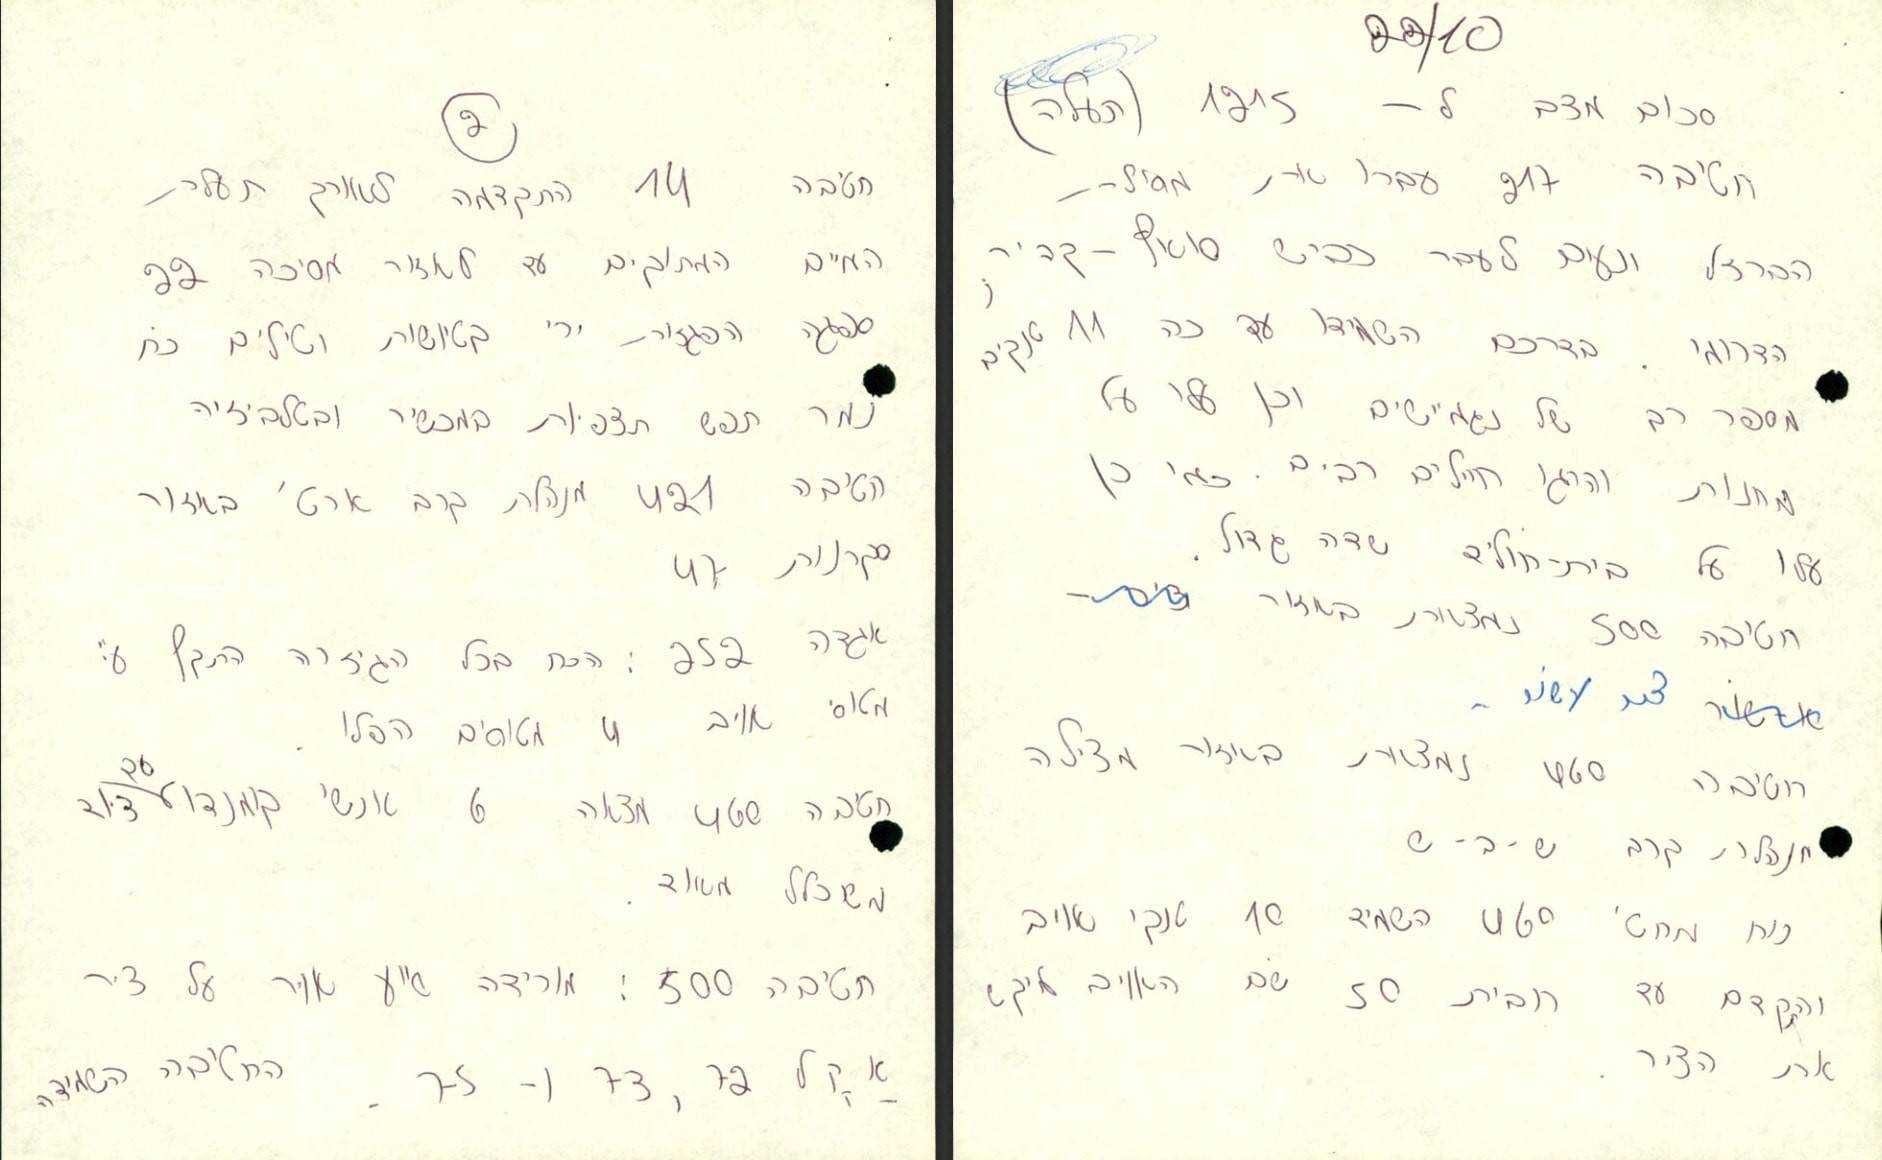 22/10
סכום מצב ל- 1215 (תעלה)
חטיבה 217 עברו את מסילת
הברזל ונעים לעבר כביש סואץ - קהיר
הדרומי. בדרכם השמידו עד כה 11 טנקים
מספר רב של נגמ"שים וכן עלו על
מחנות והרגו חיילים רבים. כמו כן
עלו על בית-חולים שדה גדול.
חטיבה 500 נמצאת באזור
חטיבה 460 נמצאת באזור מצילה
מנהלת קרב ש-ב-ש
כוח מחט' 460 השמיד 10 טנקי אויב
והתקדם עד חובית 50 שם האויב מיקש
את הציר.
2
חטיבה 14 התקדמה לאורך תעלת
המים המתוקים עד לאזור מסיכה 22
ספגה הפגזות ירי קטיושות וטילים כח
נמר תפש תצפיות במכשיר ובטלביזיה
חטיבה 421 מנהלת קרב ארט' באזור
סקרנות 47
אגדה 252: הכח בכל הגיזרה הותקף ע"י
מטוסי אויב 4 מטוסים הפלו.
חטיבה 460 מצאה 6 אנשי קומנדו עם ציוד
משוכלל מאוד.
חטיבה 500: מורידה סיוע אויר על ציר
א ק ל 72, 73 ו- 75. החטיבה השמידה